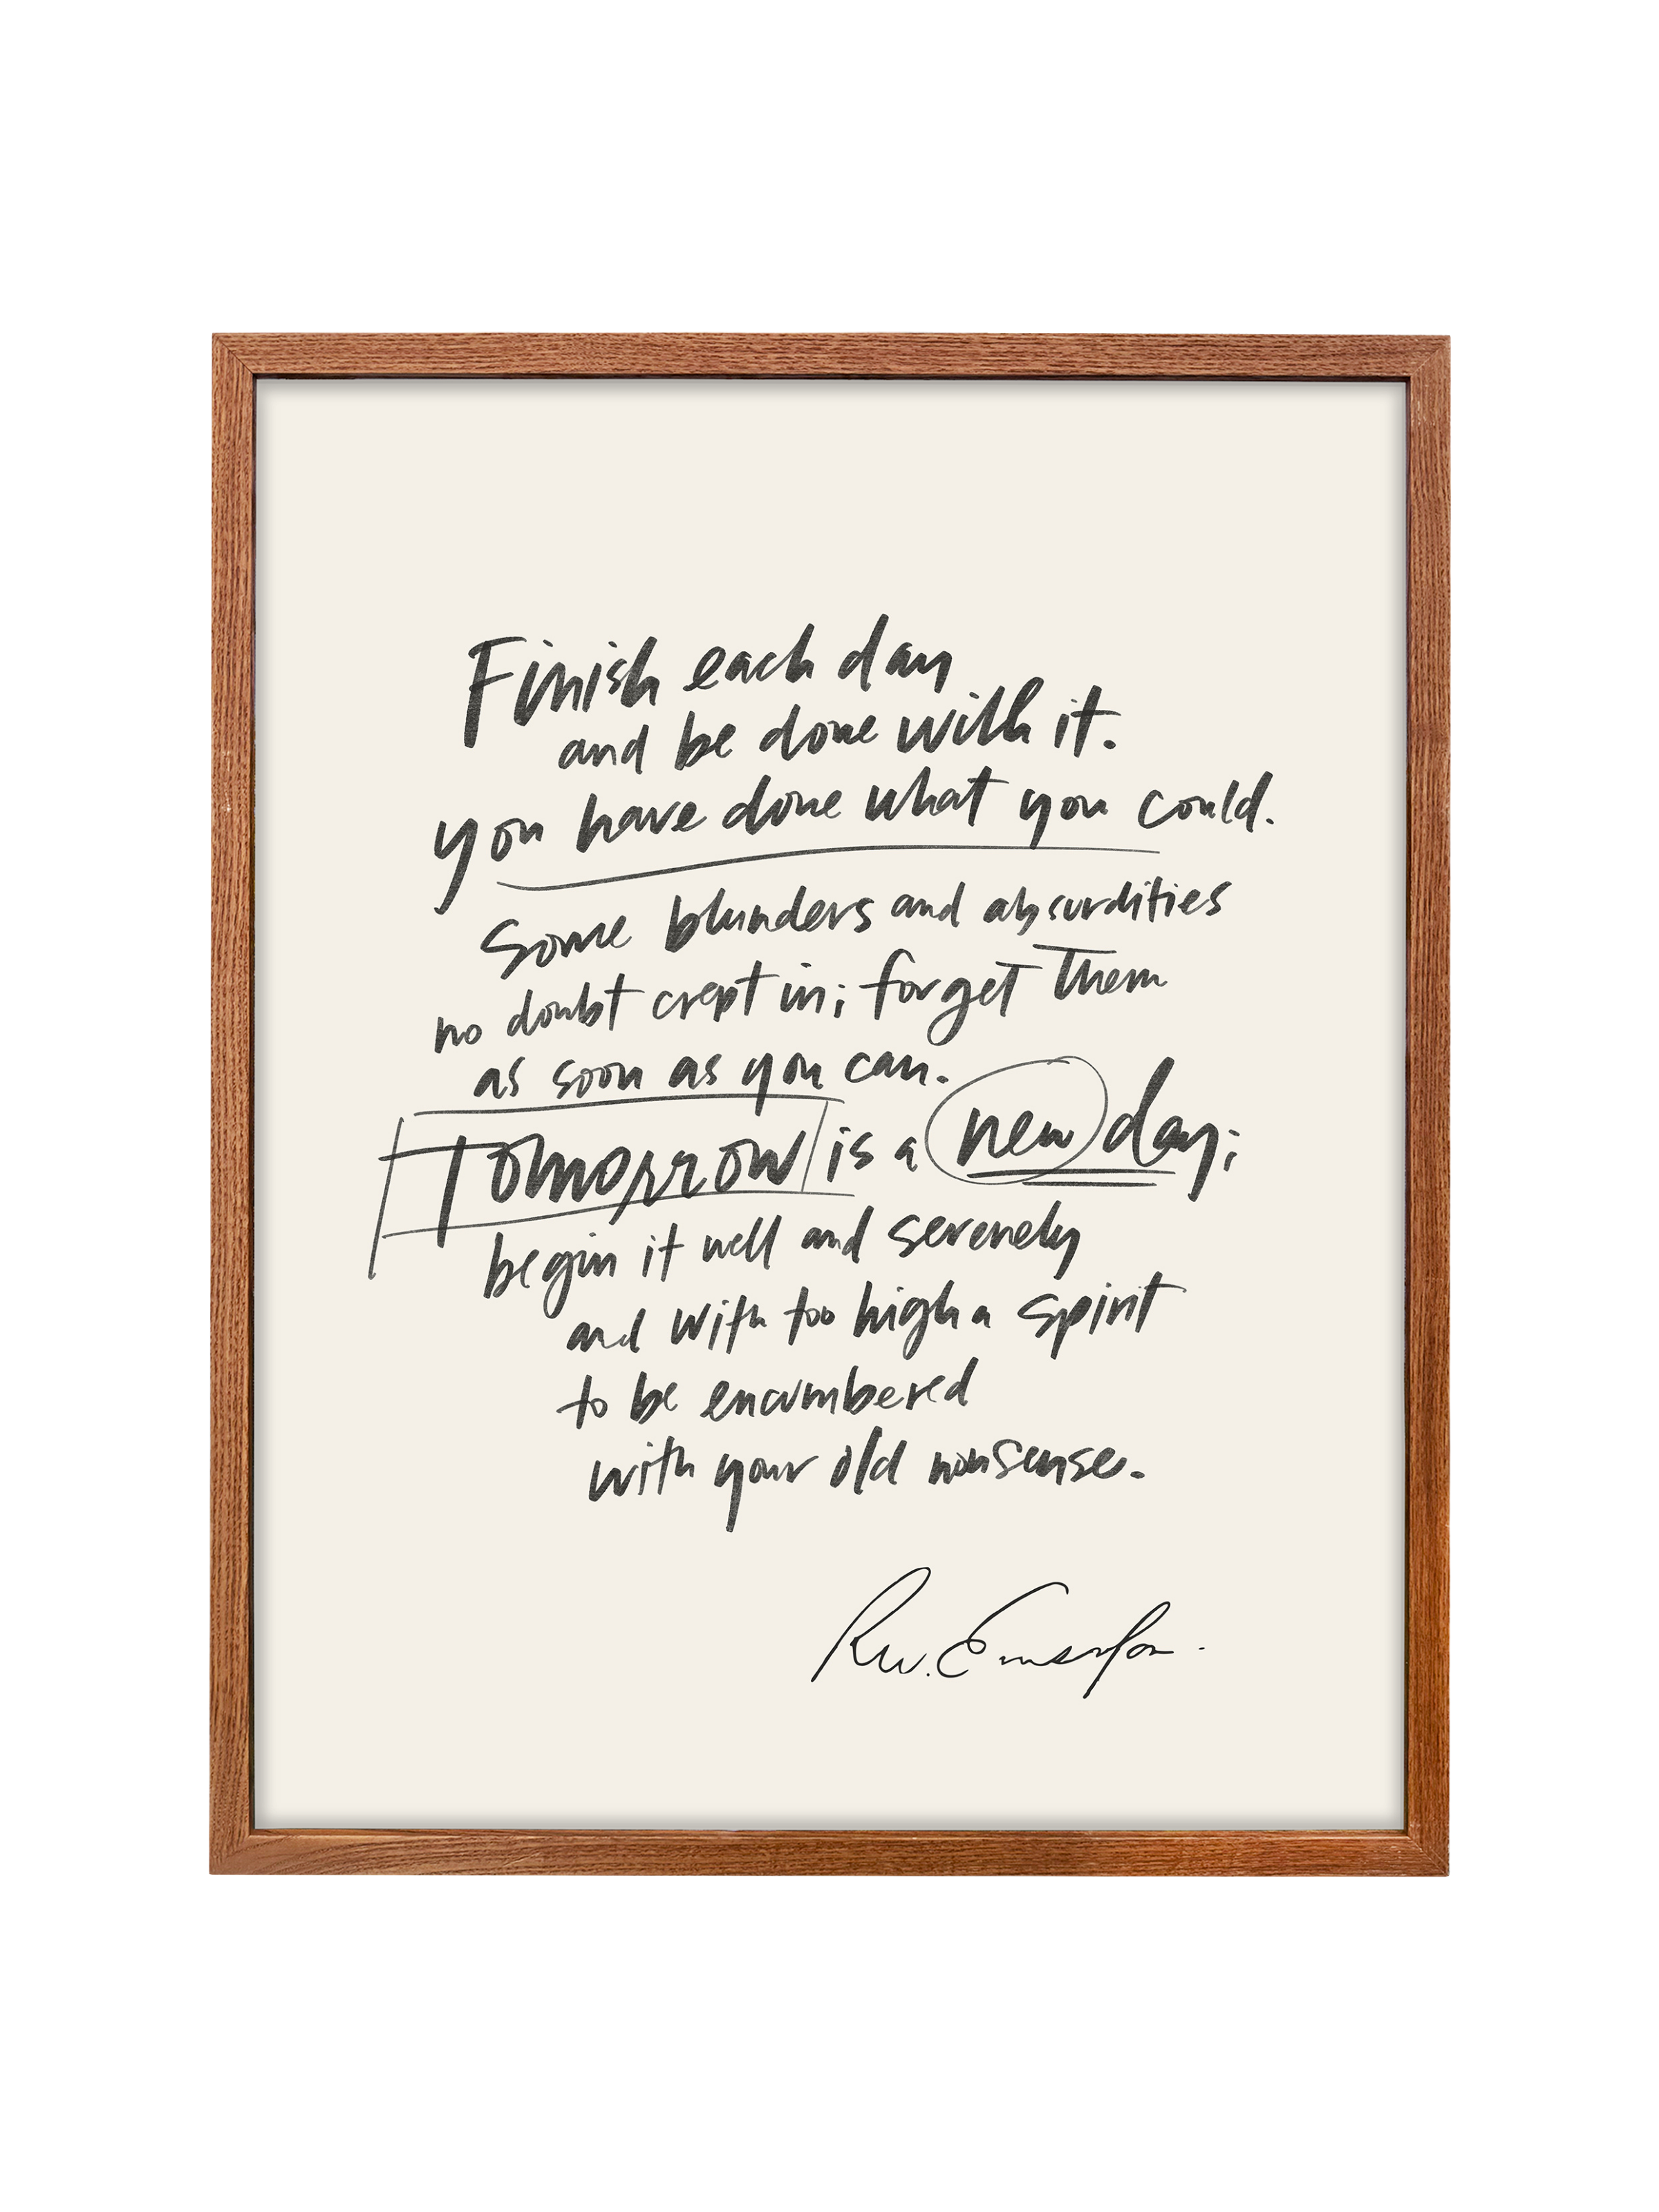 Finish each day
and be done with it.
you have done what you could.
Some blunders and absurdities
no doubt crept in; forget them
as soon as you can.
Tomorrow is a new day;
begin it well and serenely
and with too high a spirit
to be encumbered
with your old nonsense.
RW. Emerson.